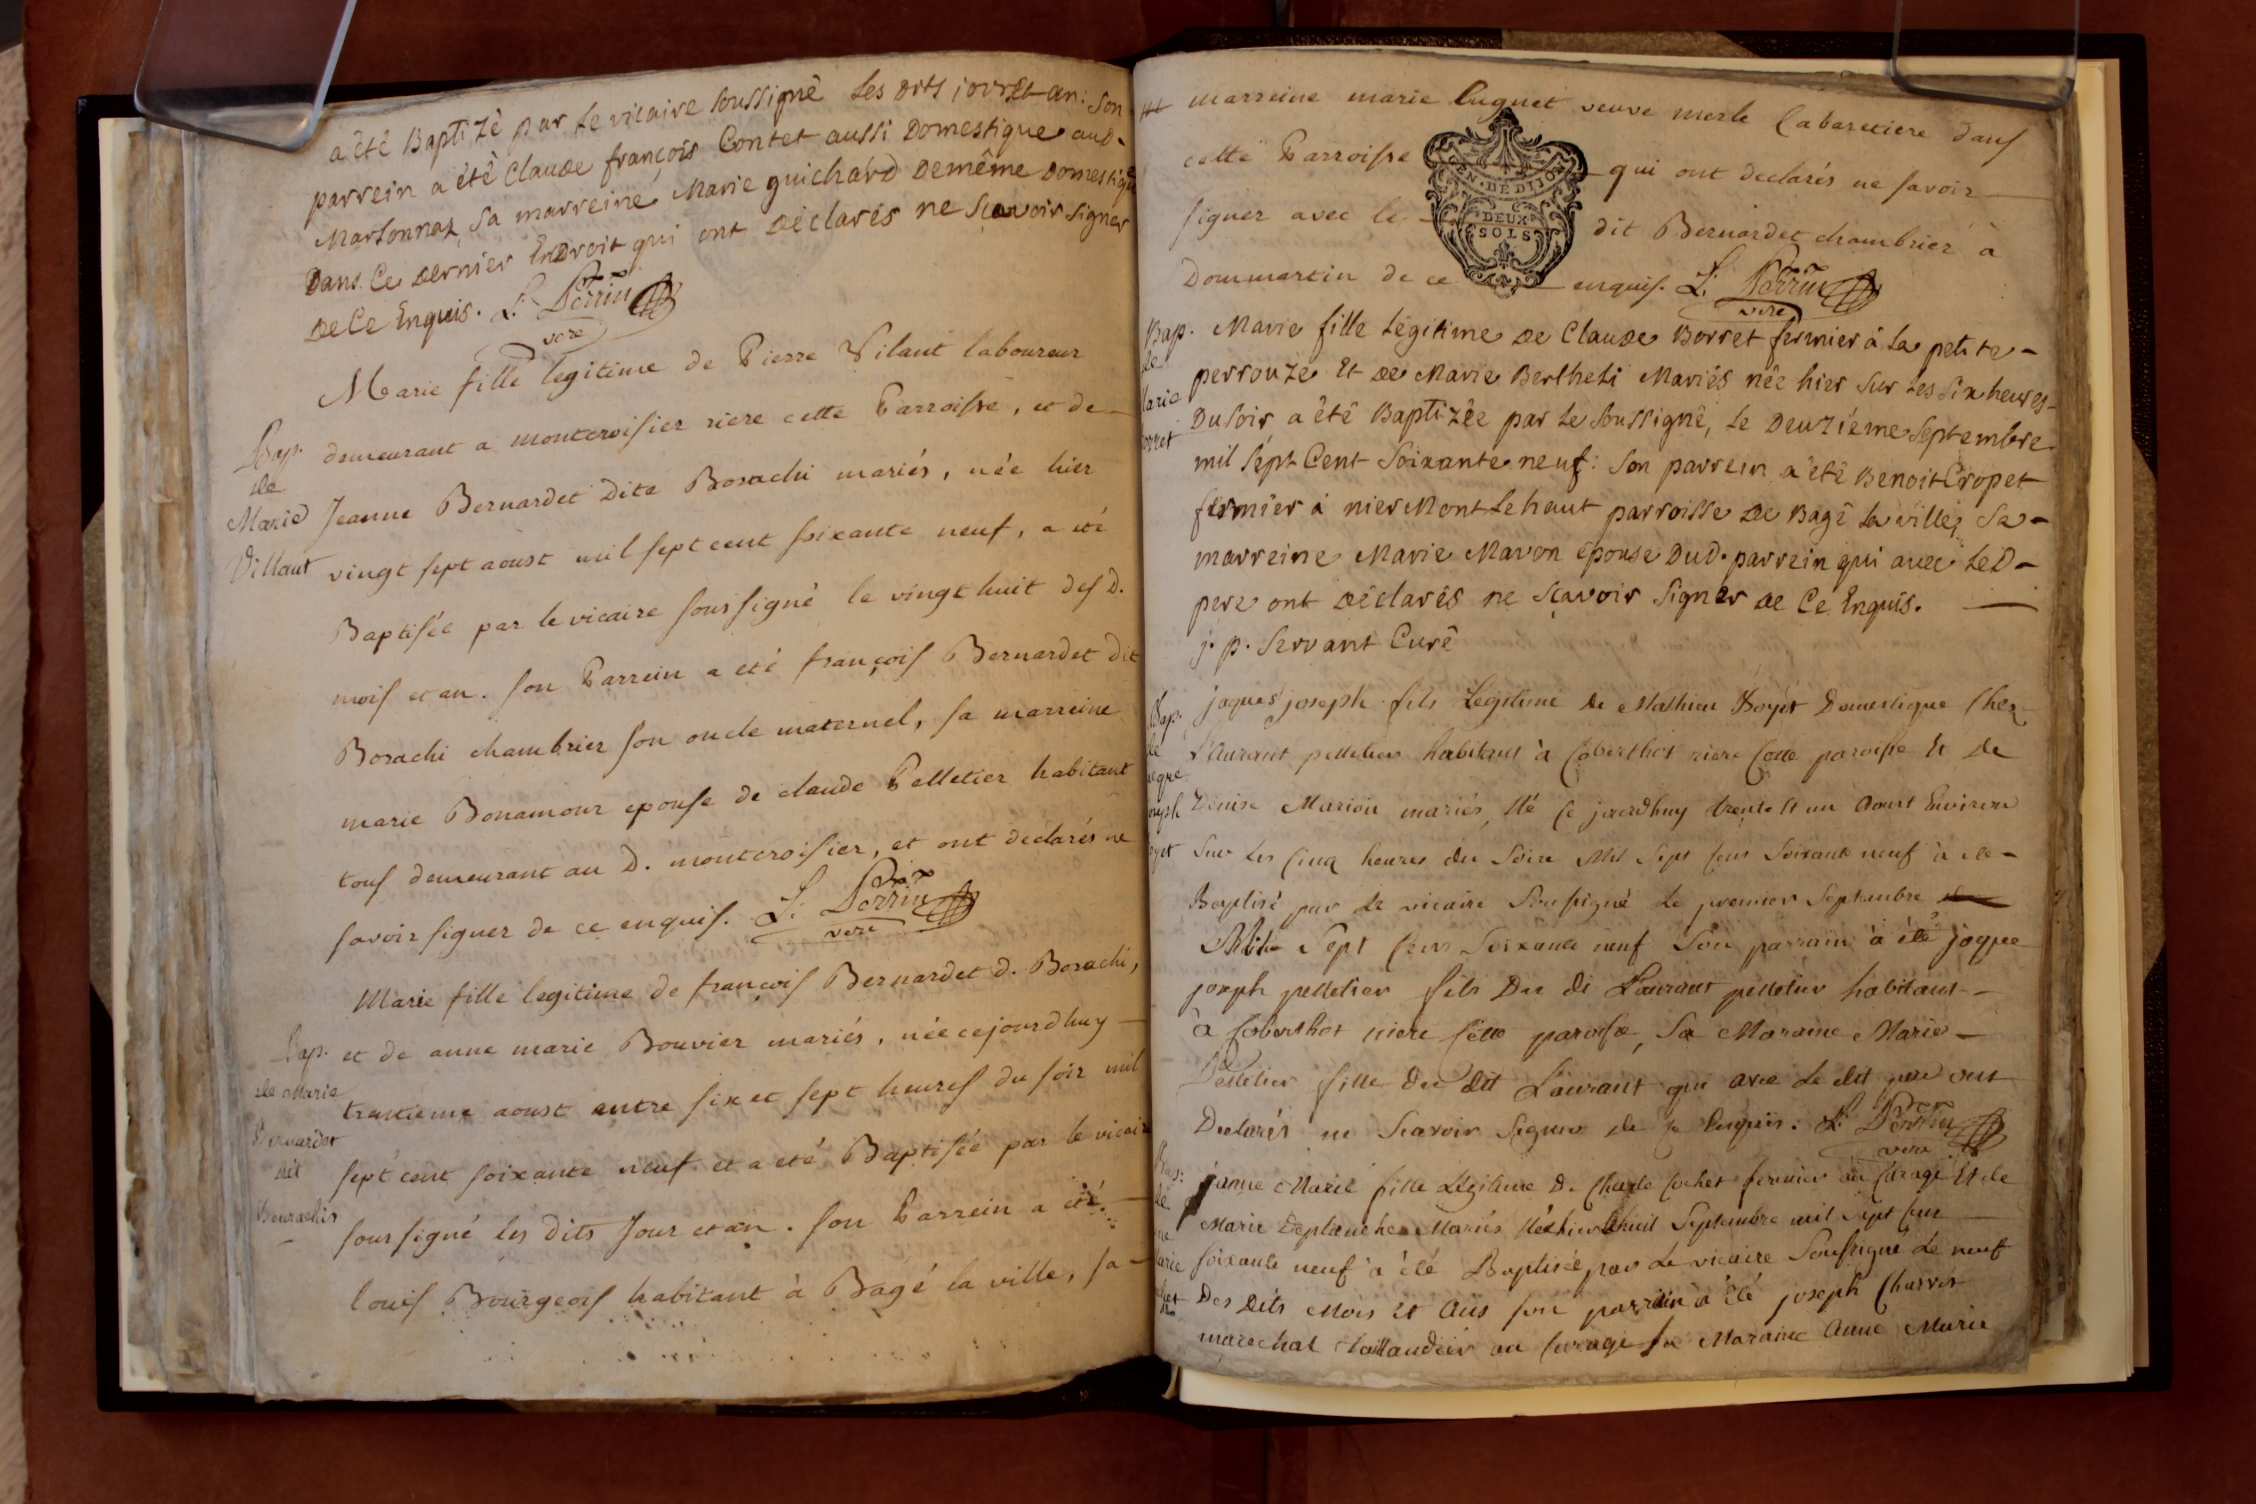 a êtê Baptizê par le vicaire soussignê les dits jour et an: son
parrein a êtê Claude françois Contet aussi Domestique aud.
Marsonnaz, sa marreine Marie guichard Demême Domestique
Dans Ce dernier Endroit qui ont dêclarês ne sçavoir signer
de Ce Enquis. L. Perrin
vere
Marie fille legitime de Pierre Vilaut laboureur
Bap. demeurant a montcroisier riere cette Parroisse, et de
de
Marie Jeanne Bernardet Dite Borachi mariés, née hier
Villaut vingt sept aoust mil sept cent soixante neuf, a eté
Baptisée par le vicaire soussigné le vingt huit des D.
mois et an. son Parrein a eté françois Bernardet dit
Borachi chambrier son oncle maternel, sa marreine
marie Bonamour epouse de claude Pelletier habitant
tous demeurant au D. montcroisier, et ont declarés ne
savoir signer de ce enquis. L. Perrin
vere
Marie fille legitime de françois Bernardet d. Borachi,
Bap. et de anne marie Bouvier mariés, née cejourdhuy
de Marie
trentieme aoust entre six et sept heures du soir mil
Bernardet
dit
sept cent soixante neuf et a eté Baptisée par le vicaire
Bourachis
soussigné les dits Jour et an. son Parrein a eté
louis Bourgeois habitant à Bagé la ville, sa
marreine marie Cugnet veuve merle Cabaretiere dans
cette Parroisse qui ont declarés ne savoir
GEN. DE DIJON
DEUX
SOLS
signer avec le dit Bernardet chambrier à
Dommartin de ce enquis. L. Perrin
vere
Bap. Marie fille Légitime de Claude Borret fermier à la petite
de
perrouze Et de Marie Bertheli Mariês nêe hier sur les six heures
Marie
Du soir a êtê Baptizêe par le soussignê, le Deuziéme Septembre
Borret
mil sépt Cent soixante neuf: son parrein a êtê Benoit Cropet
fermier à niermont le haut parroisse de Bagê la ville; sa
marreine Marie Mavon êpouse Dud. parrein qui avec le D
pere ont dêclarês ne sçavoir signer de Ce Enquis.
j. p. Servant Curê
Bap. jaques joseph fils Legitime de Mathieu Boyet Domestique Chez
de
Laurant pelletier habitant à Coberthot riere Cette paroisse Et de
Denise Marion mariés, Né Ce jourdhuy trente et un Aoust Environ
sur les Cinq heures du Soire Mil Sept Cens Soixante neuf à ete
Baptisé par le vicaire Sousigné le premier Septembre
Mile Sept Cens Soixante neuf Son parrain à êté jaque
joseph pelletier fils Du di Laurant pelletier habitant
à Coberthot riere Cette paroisse, Sa Maraine Marie
Pelletier fille Du dit Laurant qui avec Le dit pere ont
Declarés ne Scavoir Signer de ce Enquis. L. Perrin
vere
Bap: janne Marie fille Légitime D. Charle Cochet fermier au Carage Et de
de
Marie Deplanche Mariés Née hier huit Septembre mil Sept Cens
Marie soixante neuf à été Baptisée par Le vicaire Sousigné Le neuf
Des Dits Mois Et Ans son parrain à été joseph Charvet
marechal taillandier au Carage sa Maraine Anne Marie